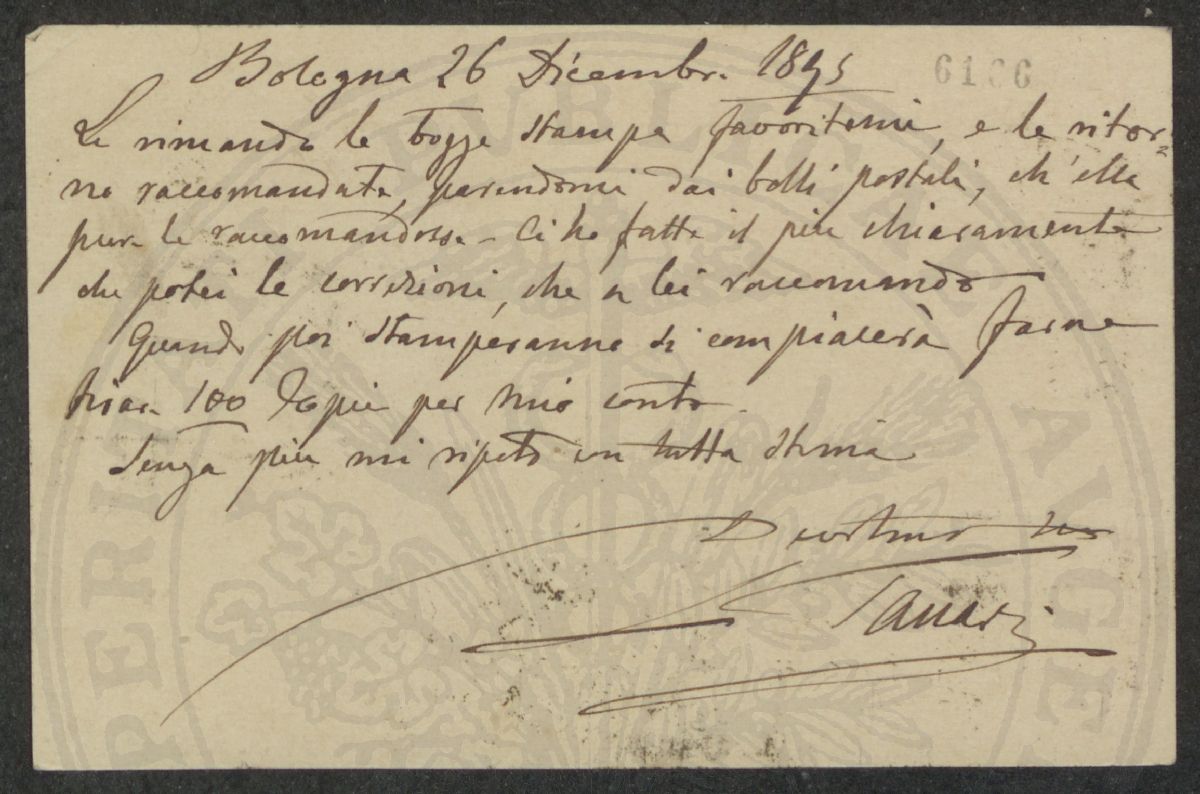 Bologna 26 Dicembre 1895
6106
Le rimando le bozze stampa favoritemi, e le ritor-
no raccomandate, parendomi dai bolli postali, ch'ella
pure le raccomandasse - Ci ho fatte il più chiaramente
che potei le correzioni, che a lei raccomando
Quando poi stamperanno si compiacerà farne
tirare 100 Copie per mio conto.
Senza più mi ripeto con tutta stima
Devotmo suo